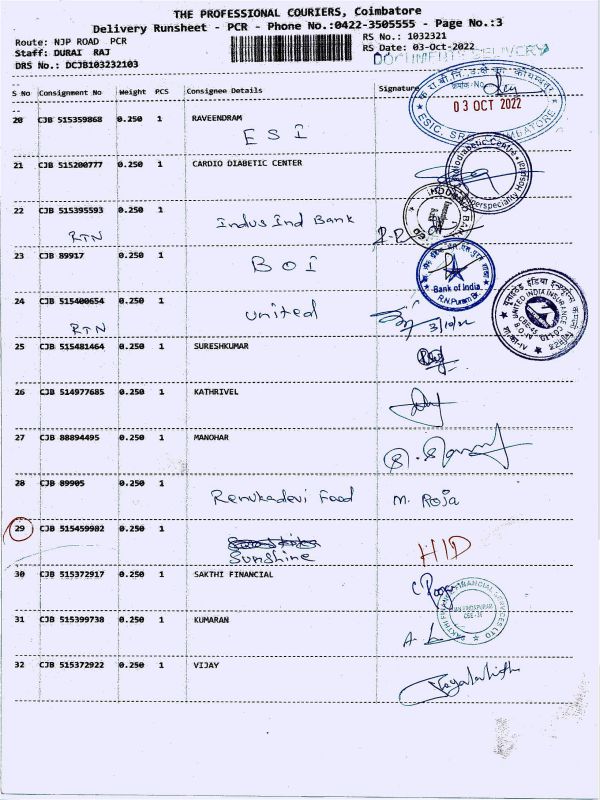 THE PROFESSIONAL COURIERS, Coimbatore
Delivery Runsheet - PCR - Phone No.:0422-3505555 - Page No.:3
Route: NJP ROAD PCR
RS No.: 1032321
Staff: DURAI RAJ
RS Date: 03-Oct-2022
DRS No.: DCJB103232103
DOCUMENTS DELIVERY
S No Consignment No Weight PCS Consignee Details Signature
03 OCT 2022
20 CJB 515359868 0.250 1 RAVEENDRAM
ESI
21 CJB 515200777 0.250 1 CARDIO DIABETIC CENTER
22 CJB 515395593 0.250 1
RTN
Indus Ind Bank
23 CJB 89917 0.250 1
BOI
Bank of India
R.N.Puram Br.
24 CJB 515400654 0.250 1
RTN
united
3/10/22
UNITED INDIA INSURANCE
25 CJB 515481464 0.250 1 SURESHKUMAR
26 CJB 514977685 0.250 1 KATHRIVEL
27 CJB 88894495 0.250 1 MANOHAR
28 CJB 89905 0.250 1
Renukadevi Food M. Roja
29 CJB 515459982 0.250 1
Sunshine
HID
30 CJB 515372917 0.250 1 SAKTHI FINANCIAL
31 CJB 515399738 0.250 1 KUMARAN
32 CJB 515372922 0.250 1 VIJAY